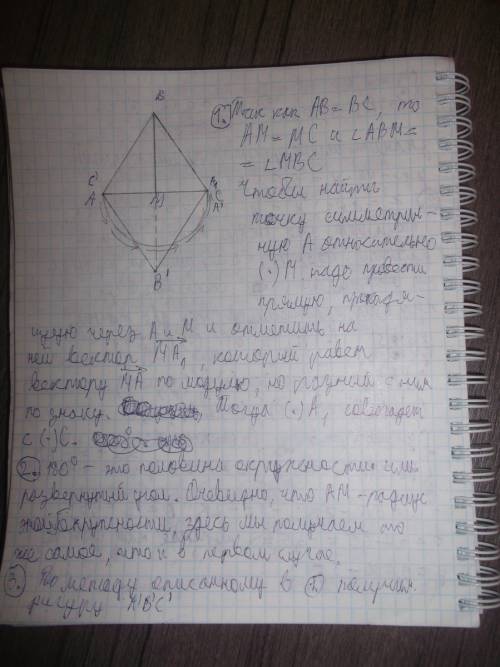 B
1. Так как AB = BC, то
AM = MC и ∠ABM =
= ∠MBC
Чтобы найти
точку симметрич-
ную A относительно
(·) M надо провести
прямую, проходя-
C'
A
M
A₁
C
A'
B'
щую через A и M и отметить на
ней вектор MA₁, который равен
вектору MA по модулю, но разный с ним
по знаку. Тогда (·) A₁ совпадает
с (·) C.
2. 180° – это половина окружности или
развернутый угол. Очевидно, что AM – радиус
этой окружности, здесь мы получаем то
же самое, что и в первом случае.
3. По методу описанному в 1 получим
фигуру A'B'C'